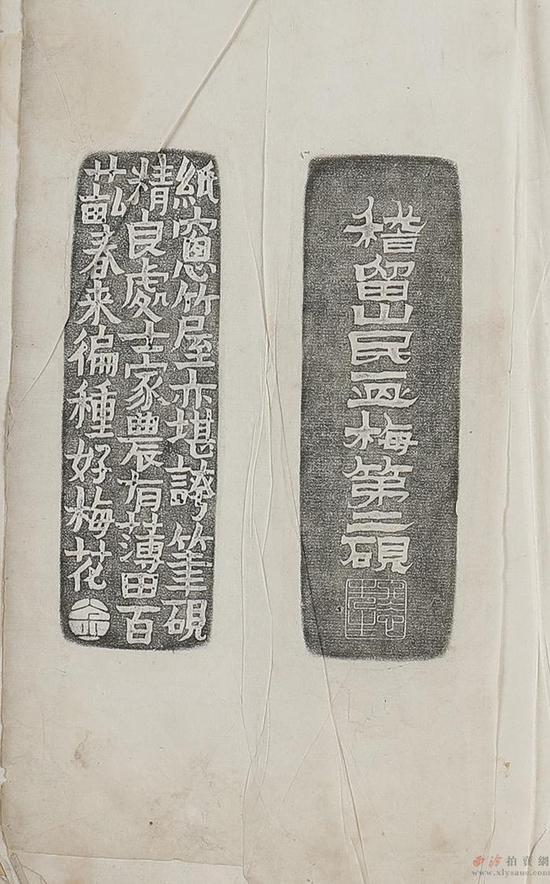 稽留山民画梅第二硯
紙窻竹屋亦堪誇筆硯
精良處士家農有薄田百
畝春来徧種好梅花
金
西泠拍賣網
www.xlysauc.com